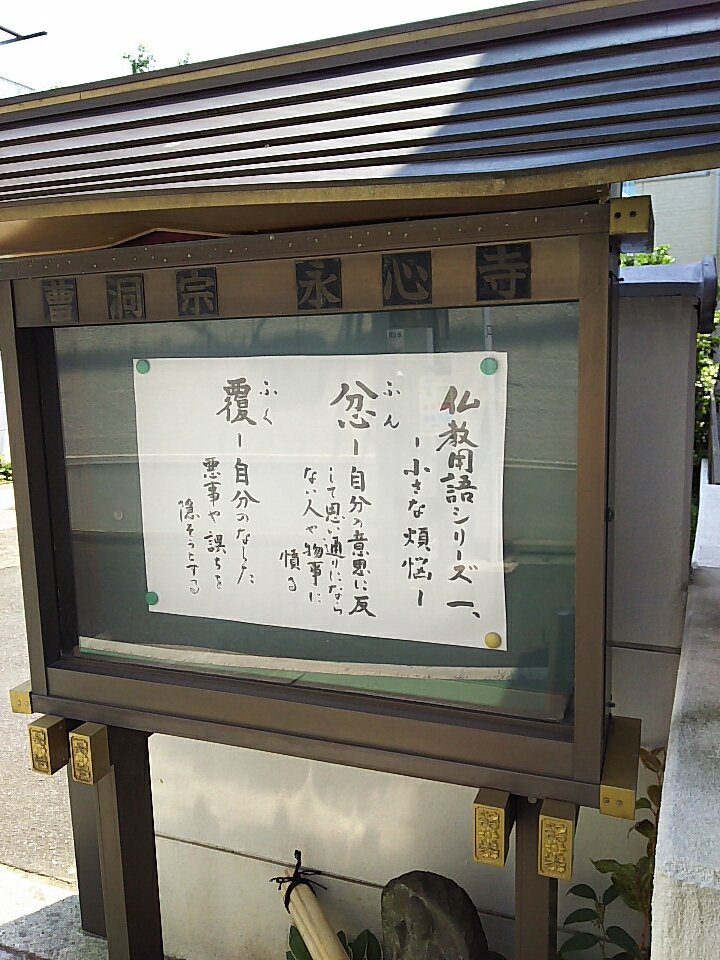 曹洞宗 永心寺
仏教用語シリーズ 一、
ー小さな煩悩ー
ふん
忿ー自分の意思に反
して思い通りになら
ない人や物事に
憤る
ふく
覆ー自分のなした
悪事や誤ちを
隠そうとする